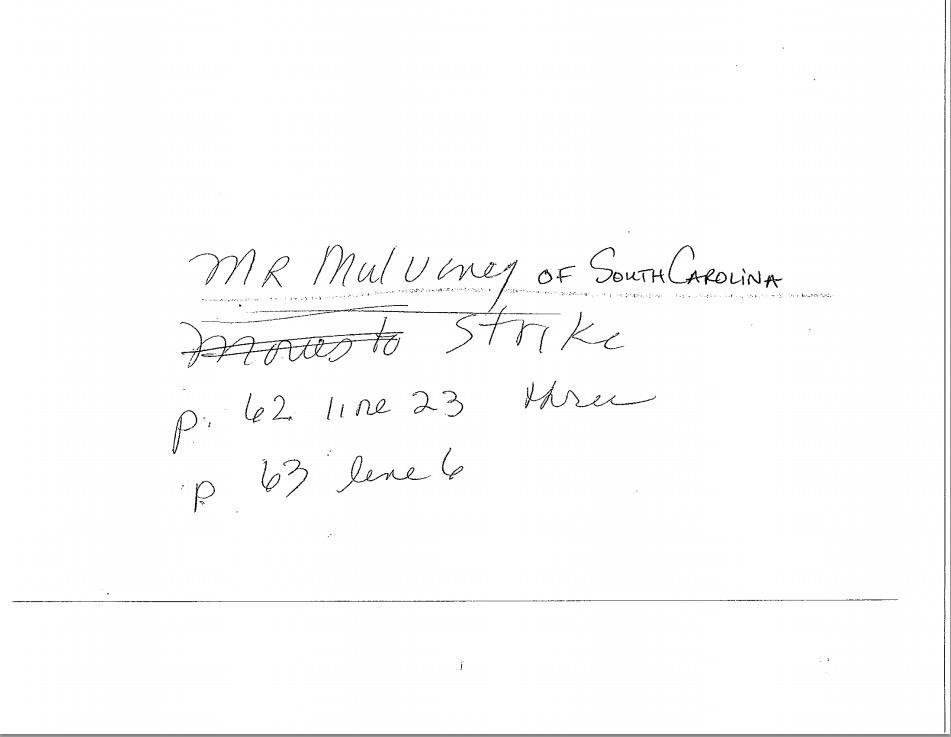 MR Mulvaney OF SOUTH CAROLINA
Moves to Strike
p. 62 line 23 three
p 63 line 6